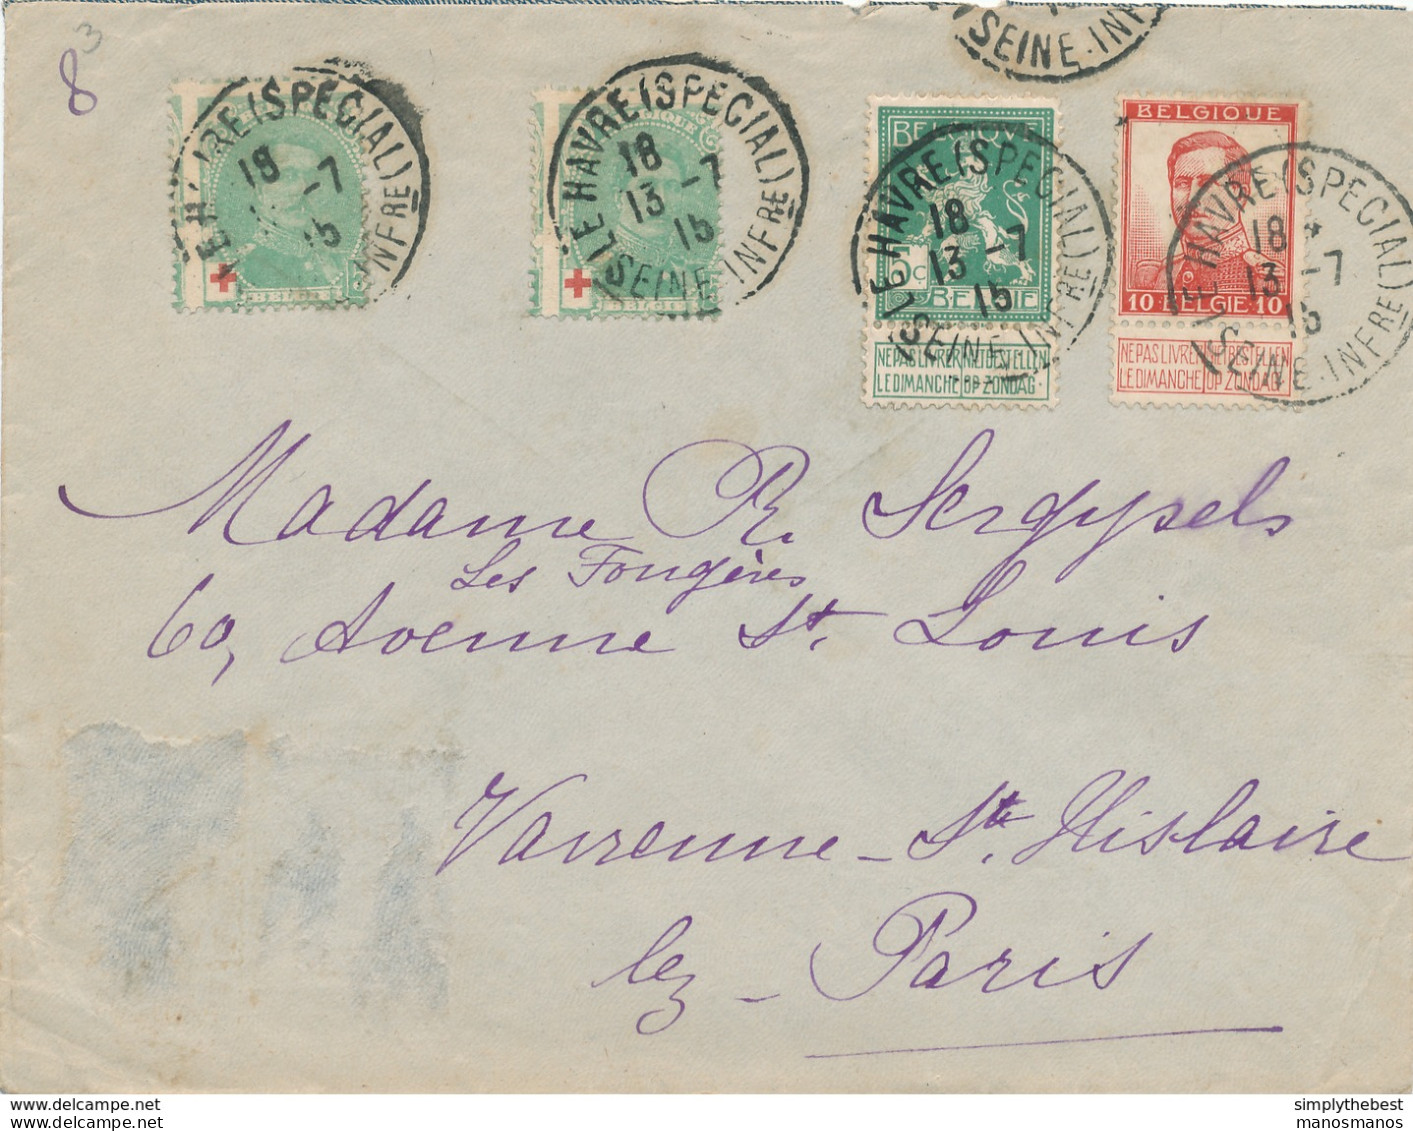 8
3
SEINE-INF
LE HAVRE (SPECIAL)
18
13 -7
15
SEINE INFRE
LE HAVRE (SPECIAL)
18
13 -7
15
(SEINE INFRE)
BELGIQUE
5c
BELGIE
NE PAS LIVRER NIET BESTELLEN
LE DIMANCHE OP ZONDAG
LE HAVRE (SPECIAL)
18
13 -7
15
(SEINE-INFRE)
BELGIQUE
10 BELGIE 10
NE PAS LIVRER NIET BESTELLEN
LE DIMANCHE OP ZONDAG
LE HAVRE (SPECIAL)
18
13 -7
15
(SEINE-INFRE)
Madame R. Sergysels
Les Fougères
60, Avenue St. Louis
Varenne - St. Hislaire
lez - Paris
simplythebest
manosmanos